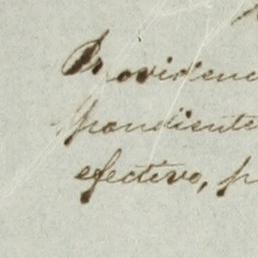 Providenc
pondiente
efectivo, p